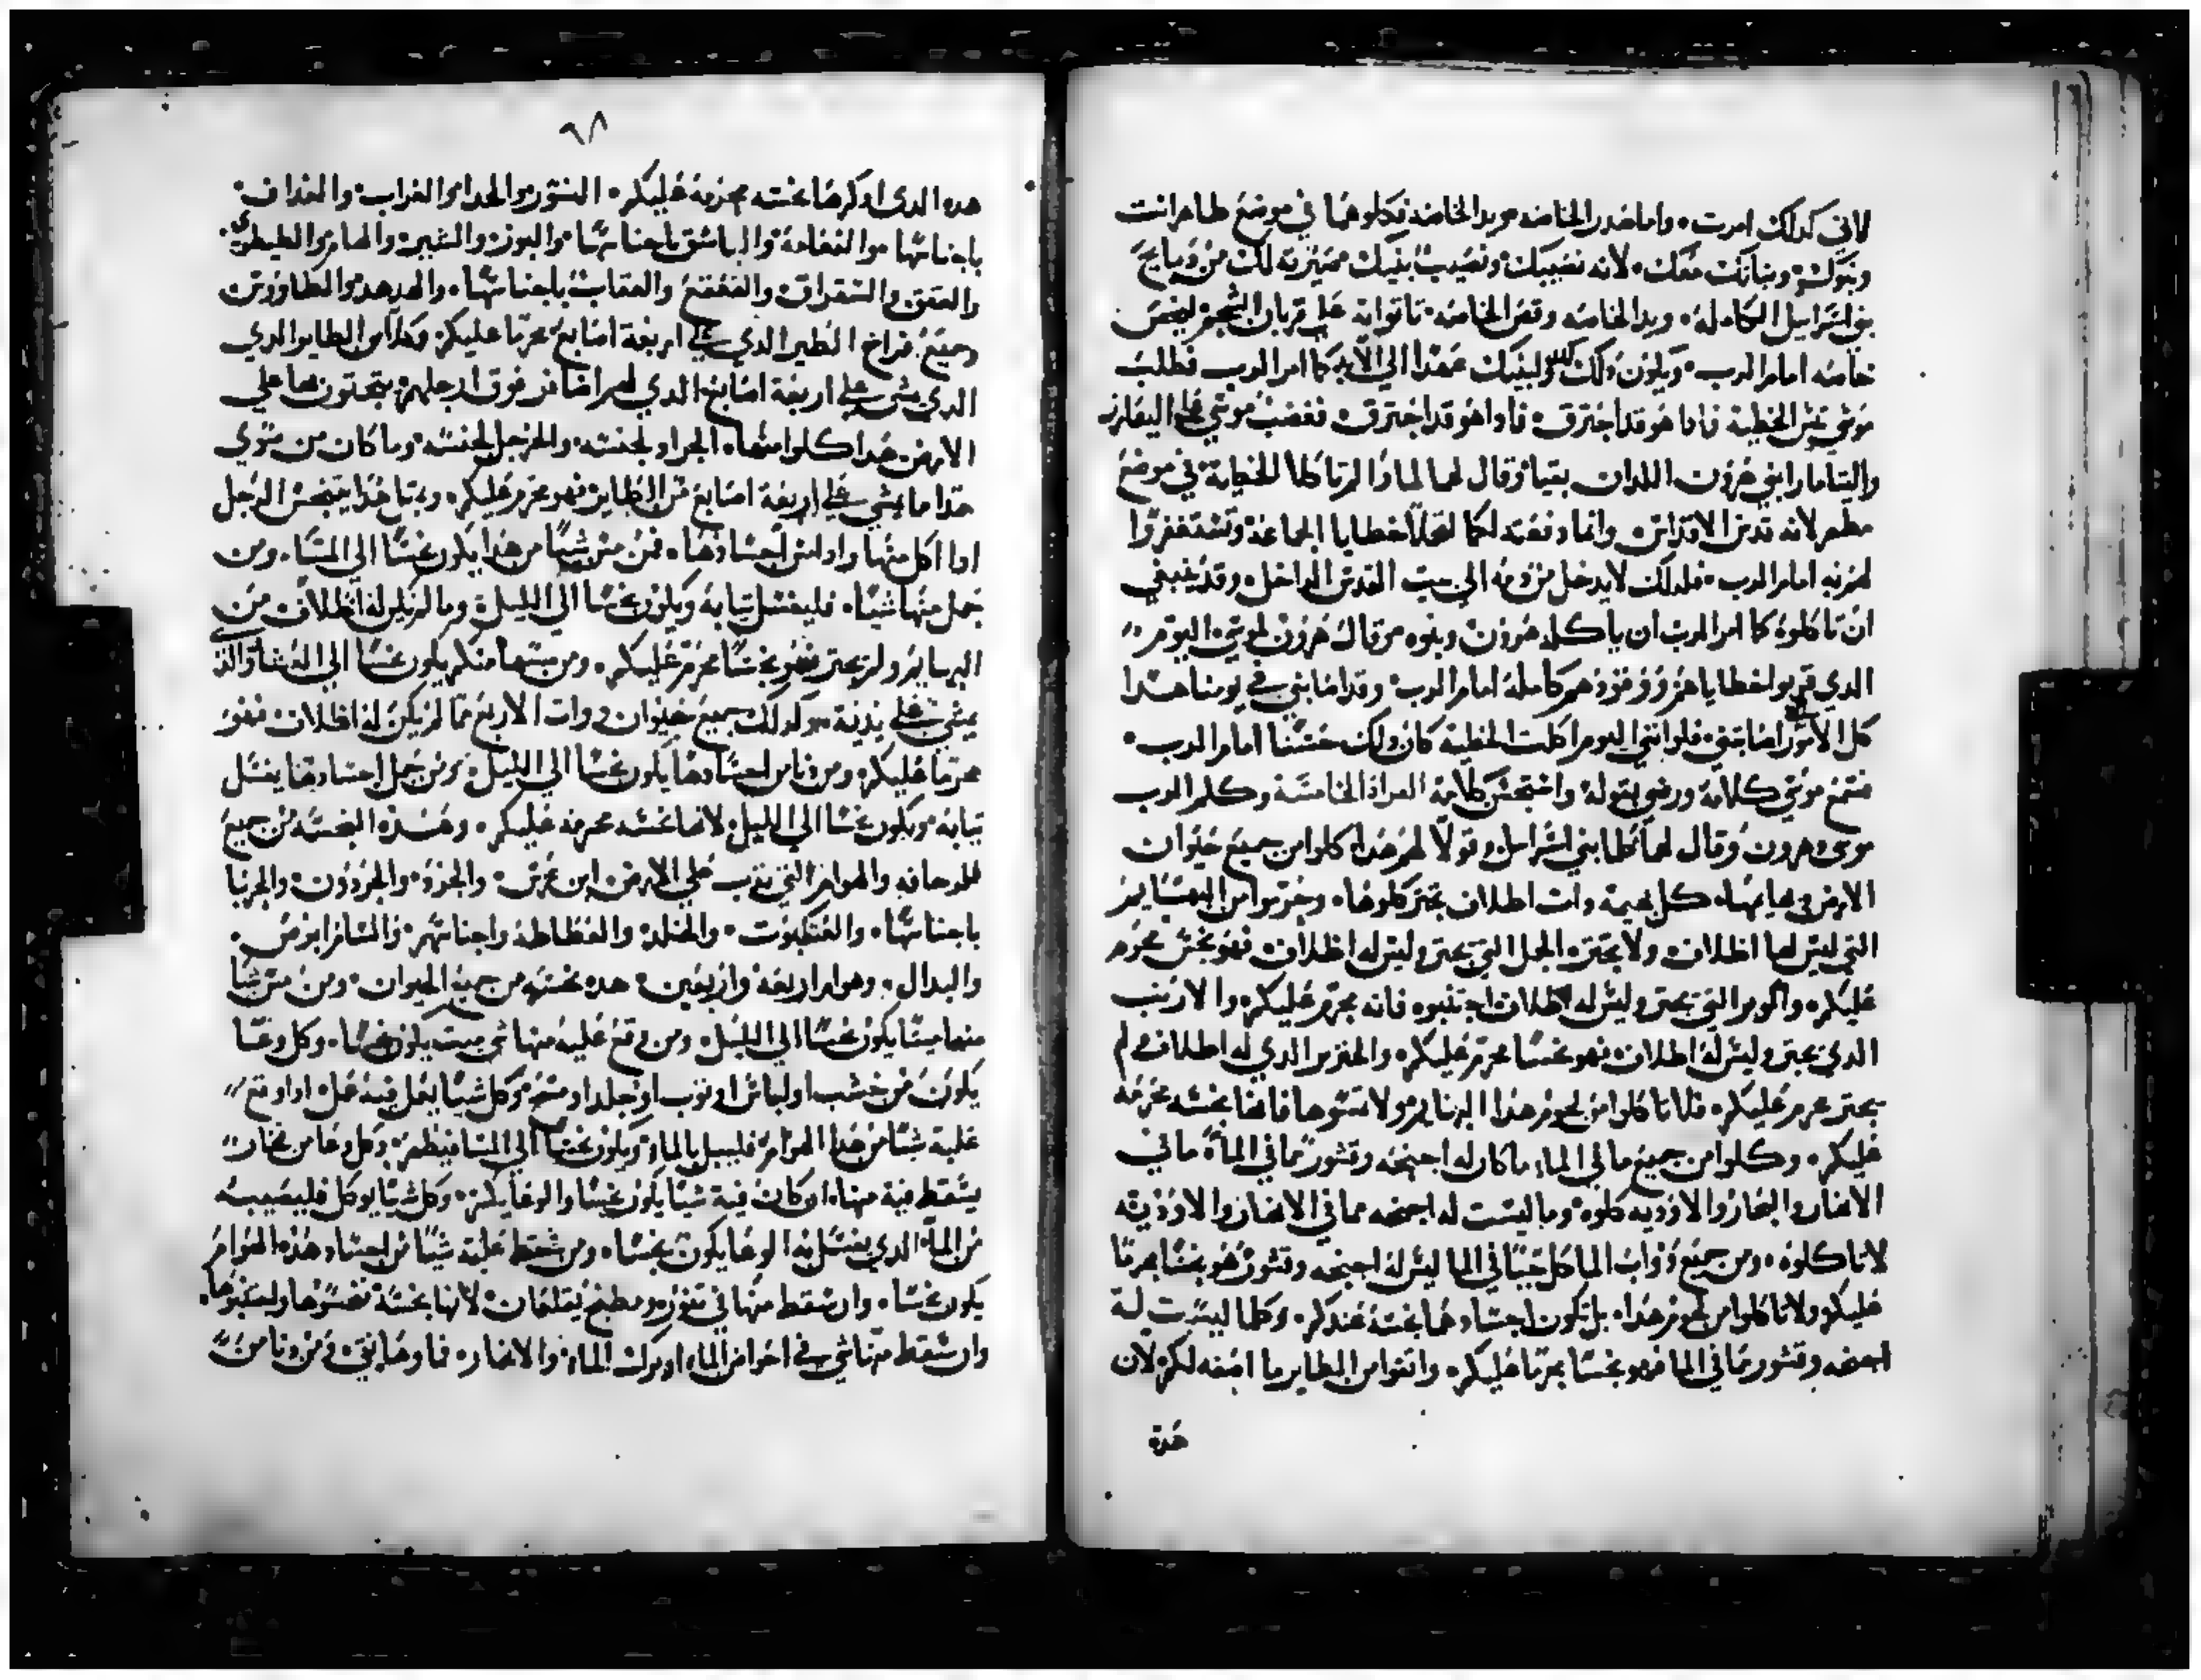 لاني كدلك امرت. واما صدر الخاصه ويد الخاصه فكلوهما في موضع طاهر انت
وبنوك وبناتك معك. لانه نصيبك ونصيب بنيك مميزته لك من دبايح
بنو اسراييل الكامله. ويد الخاصه وقص الخاصه. تاتوا به علي قربان الشحم ليخص
خاصه امام الرب. ويكون دلك لك ولبنيك عهدا الي الابد كما امر الرب فطلب
موسي تيس الخطية فادا هو قد احترق. فادا هو قد احترق. فغضب موسي علي اليعازر
واليتامار ابني هرون اللدان بقيا وقال لهما لمادا لم تاكلا للخطاية في موضع
مطهر لانه قدس الاقداس وانما دفعته لكما لتحلا خطايا الجماعة وتستغفروا
لهم به امام الرب. فلدلك لا يدخل من دمه الي بيت القدس الداخل. وقد ينبغي
ان تاكلوه كما امر الرب ان ياكله هرون وبنوه وقال هرون لموسي. اليوم
الدي قربوا خطاياهم ووقودهم كامله امام الرب. وقد اصابني في يومنا هدا
كل الامور اصابتني. فلو انني اليوم اكلت الخطية كان دلك حسنا امام الرب.
فسمع موسي كلامه ورضي بقوله واعجبه كلامه المراة الخامسة وكلم الرب
موسي وهرون وقال لهما كلما بني اسراييل وقولا لهم هدا كلوا من جميع حيوان
الارض وبهايمها. كل بهيمة دات اظلاف تجتر كلوها. وحرموا من البهايم
التي ليس لها اظلاف ولا تجتر. الجمل التي يجتر وليس له اظلاف فهو نجس محرم
عليكم. والوبر التي يجتر وليس له اظلاف اجتنبوه فانه محرم عليكم. والارنب
الدي يجتر وليس له اظلاف فهو نجسا محرم عليكم. والخنزير الدي له اظلاف ولم
يجتر محرم عليكم. فلا تاكلوا من لحوم هدا البهايم ولا تمسوها فانها نجسه محرمه
عليكم. وكلوا من جميع ما في الماء ما كان له اجنحه وقشور مما في الماء ما في
الانهار والبحار والاودية كلوه وما ليست له اجنحه مما في الانهار والاودية
لا تاكلوه. ومن جميع دواب الما كل حيا في الما ليس له اجنحه وقشور هو نجسا محرما
عليكم ولا تاكلوا من لحوم هدا. بل تكون اجسادها نجسة عندكم. وكلما ليست له
اجنحه وقشور مما في الما فهو نجسا محرما عليكم. واتقوا من الطاير ما اصفه لكم لان
هده
٦٨
هده الدي ادكرها نجسه محرمة عليكم. النسور والحدا والغراب والغداف.
باجناسها والنعامة والباشق باجناسها والبوز والشبين والهام والطيطوي.
والعقق والشقراق والقعقع والعقاب باجناسها. والهدهد والطاووس
وجميع فراخ الطير الدي علي اربعة اصابع محرما عليكم وكلوا من الطاير الدي
الدي يمشي علي اربعة اصابع الدي لهم افخاد من فوق ارجلهم يتحتون بها علي
الارض هدا كلوا منها. الجراد بجنسه. والحرجل بجنسه. وما كان من سوي
هدا ما يمشي علي اربعة اصابع من الطاير فهو محرم عليكم. وبمثل هدا يتنجس الرجل
ادا اكل منها وادا مس اجسادها. فمن مس شيا من هدا يكون نجسا الي المسا. ومن
حمل منها شيا. فليغسل ثيابه ويكون نجسا الي الليل. وما لم يكن له اظلاف من
البهايم ولم يجتر فهو نجسا محرم عليكم. ومن مسها منكم يكون نجسا الي العشا والدي
يمشي علي يديه وكدلك جميع حيوان دوات الاربع مما لم يكن له اظلاف فهو
محرما عليكم. ومن دنا من اجسادها يكون نجسا الي الليل. ومن حمل اجسادها يغسل
ثيابه ويكون نجسا الي الليل. لانها نجسه محرمه عليكم. وهده النجسة من جميع
والهوام التي تدب علي الارض. ابن عرس. والجرد. والحردون والحربا
باجناسها. والعنكبوت. والخلد والعظاطة واجناسهم. والسام ابرص.
والبدال. وهوام اربعة واربعين. هده نجسة من جميع الحيوان. ومن مس شيا
منها ميتا يكون نجسا الي الليل. ومن وقع عليه منها شي ميت يكون نجسا. وكل وعا
يكون من خشب او لباس او ثوب او جلد او مسح وكل شيا يعمل فيه عمل. ادا وقع
عليه شيا من هدا الهوام فليبل بالماء ويكون نجسا الي المسا فيطهر. وكل وعا من فخار
يسقط فيه منها. او كان فية شيا يكون نجسا والوعا يكسر. وكل شيا يوكل فليصيبه
من الماء الدي يغسل به الوعا يكون نجسا. ومن سقط عليه شيا من اجساد هده الهوام
يكون نجسا. وان سقط منها في تنور ومطبخ يقلعان لانها نجسة نجسوها واجتنبوها.
وان سقط منها شي في احواض الماء او برك الماء والانهار. فما وها نقي ومن دنا من